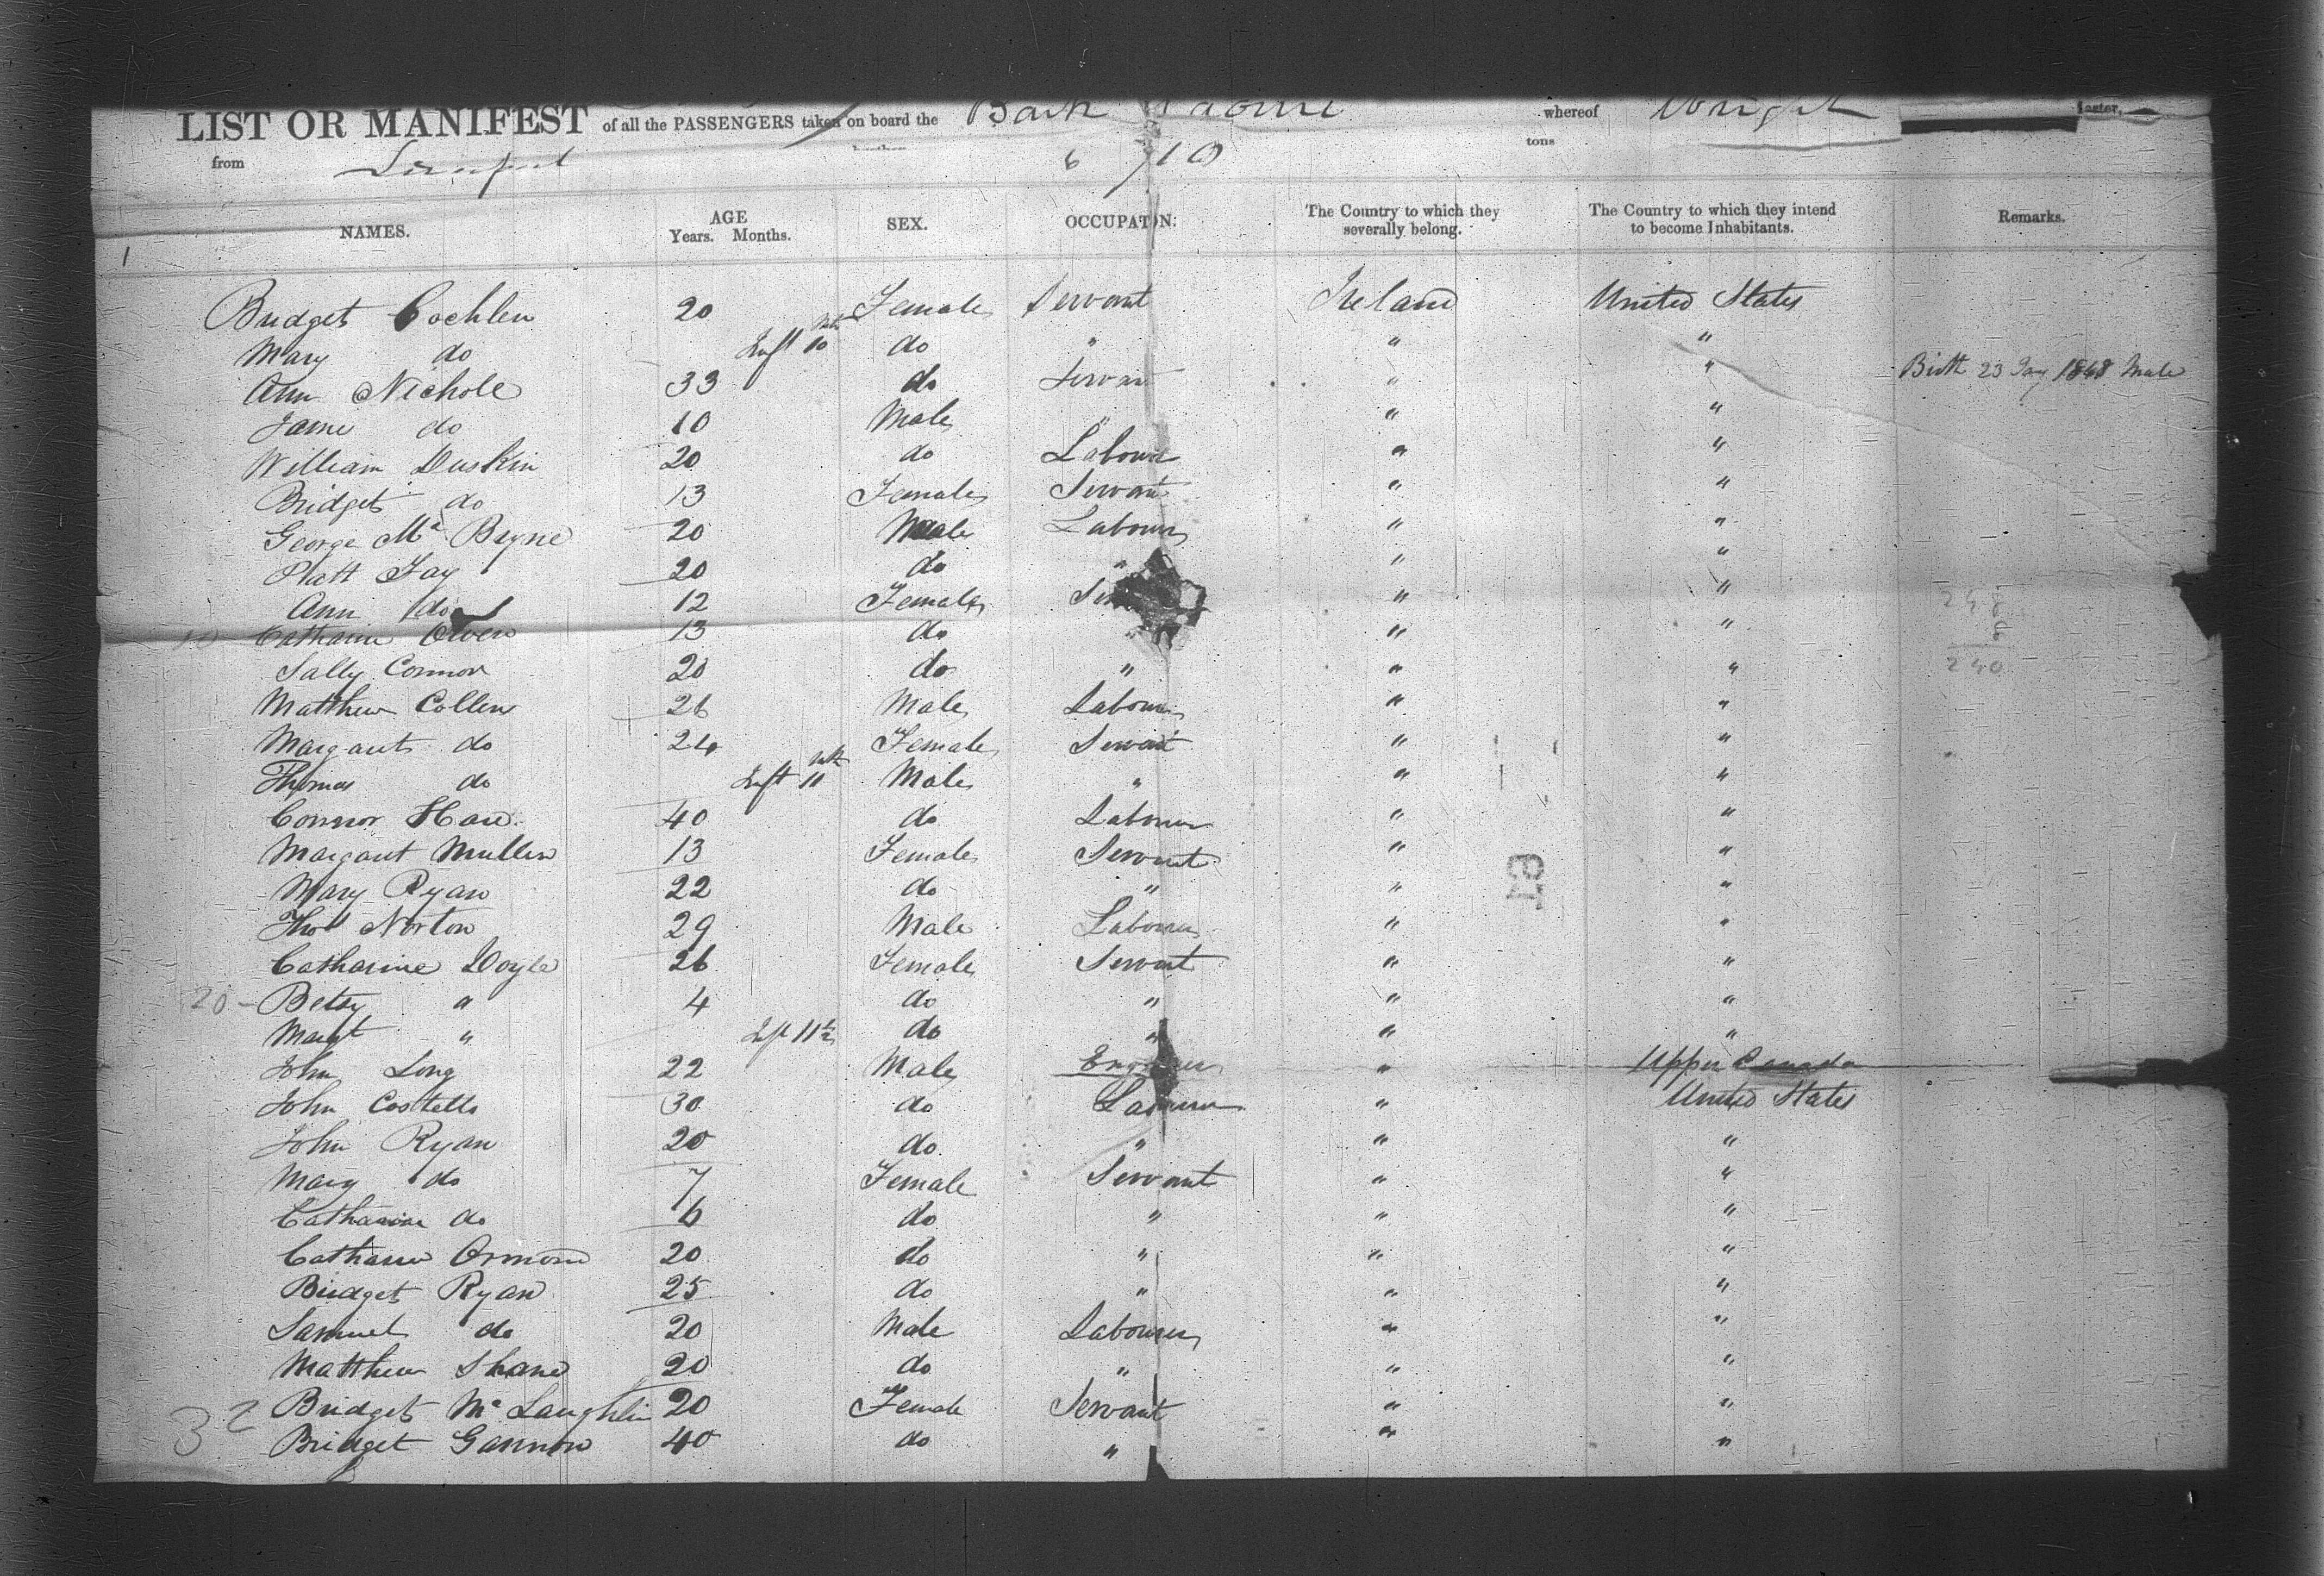 LIST OR MANIFEST of all the PASSENGERS taken on board the Bark whereof Wright Master,
from Liverpool tons
6 /10
NAMES. AGE Years. Months. SEX. OCCUPATION: The Country to which they severally belong. The Country to which they intend to become Inhabitants. Remarks.
1
Bridget Cochlen 20 Female Servant Ireland United States
Mary do Inft 10 Mths do " " "
Ann Nichole 33 do Servant " " Birth 23 Jany 1848 Male
Jame do 10 Male " " "
William Duskin 20 do Labourer " "
Bridget do 13 Female Servant " "
George Mc Bryne 20 Male Labourer " "
Platt Fay 20 do " " "
Ann do 12 Female " "
10 Catharine Owen 13 do " "
Sally Connor 20 do " " "
Matthew Collen 26 Male Labourer " "
Margaret do 24 Female Servant " "
Thomas do Inft 10 Mths Male " " "
Connor Haw 40 do Labourer " "
Margaret Mullen 13 Female Servant " "
Mary Ryan 22 do " " "
Thos Norton 29 Male Labourer " "
Catharine Doyle 26 Female Servant " "
20 - Betsy " 4 do " " "
Margt " Inft 11 do " " "
John Long 22 Male Engineer " Upper Canada
John Costello 30 do Labourer " United States
John Ryan 20 do " " "
Mary do 7 Female Servant " "
Catharine do 6 do " " "
Catharine Ormond 20 do " " "
Bridget Ryan 25 do " " "
Samuel do 20 Male Labourer " "
Matthew Shane 20 do " " "
Bridget Mc Laughlin 20 Female Servant " "
32 Bridget Gannon 40 do " " "
240